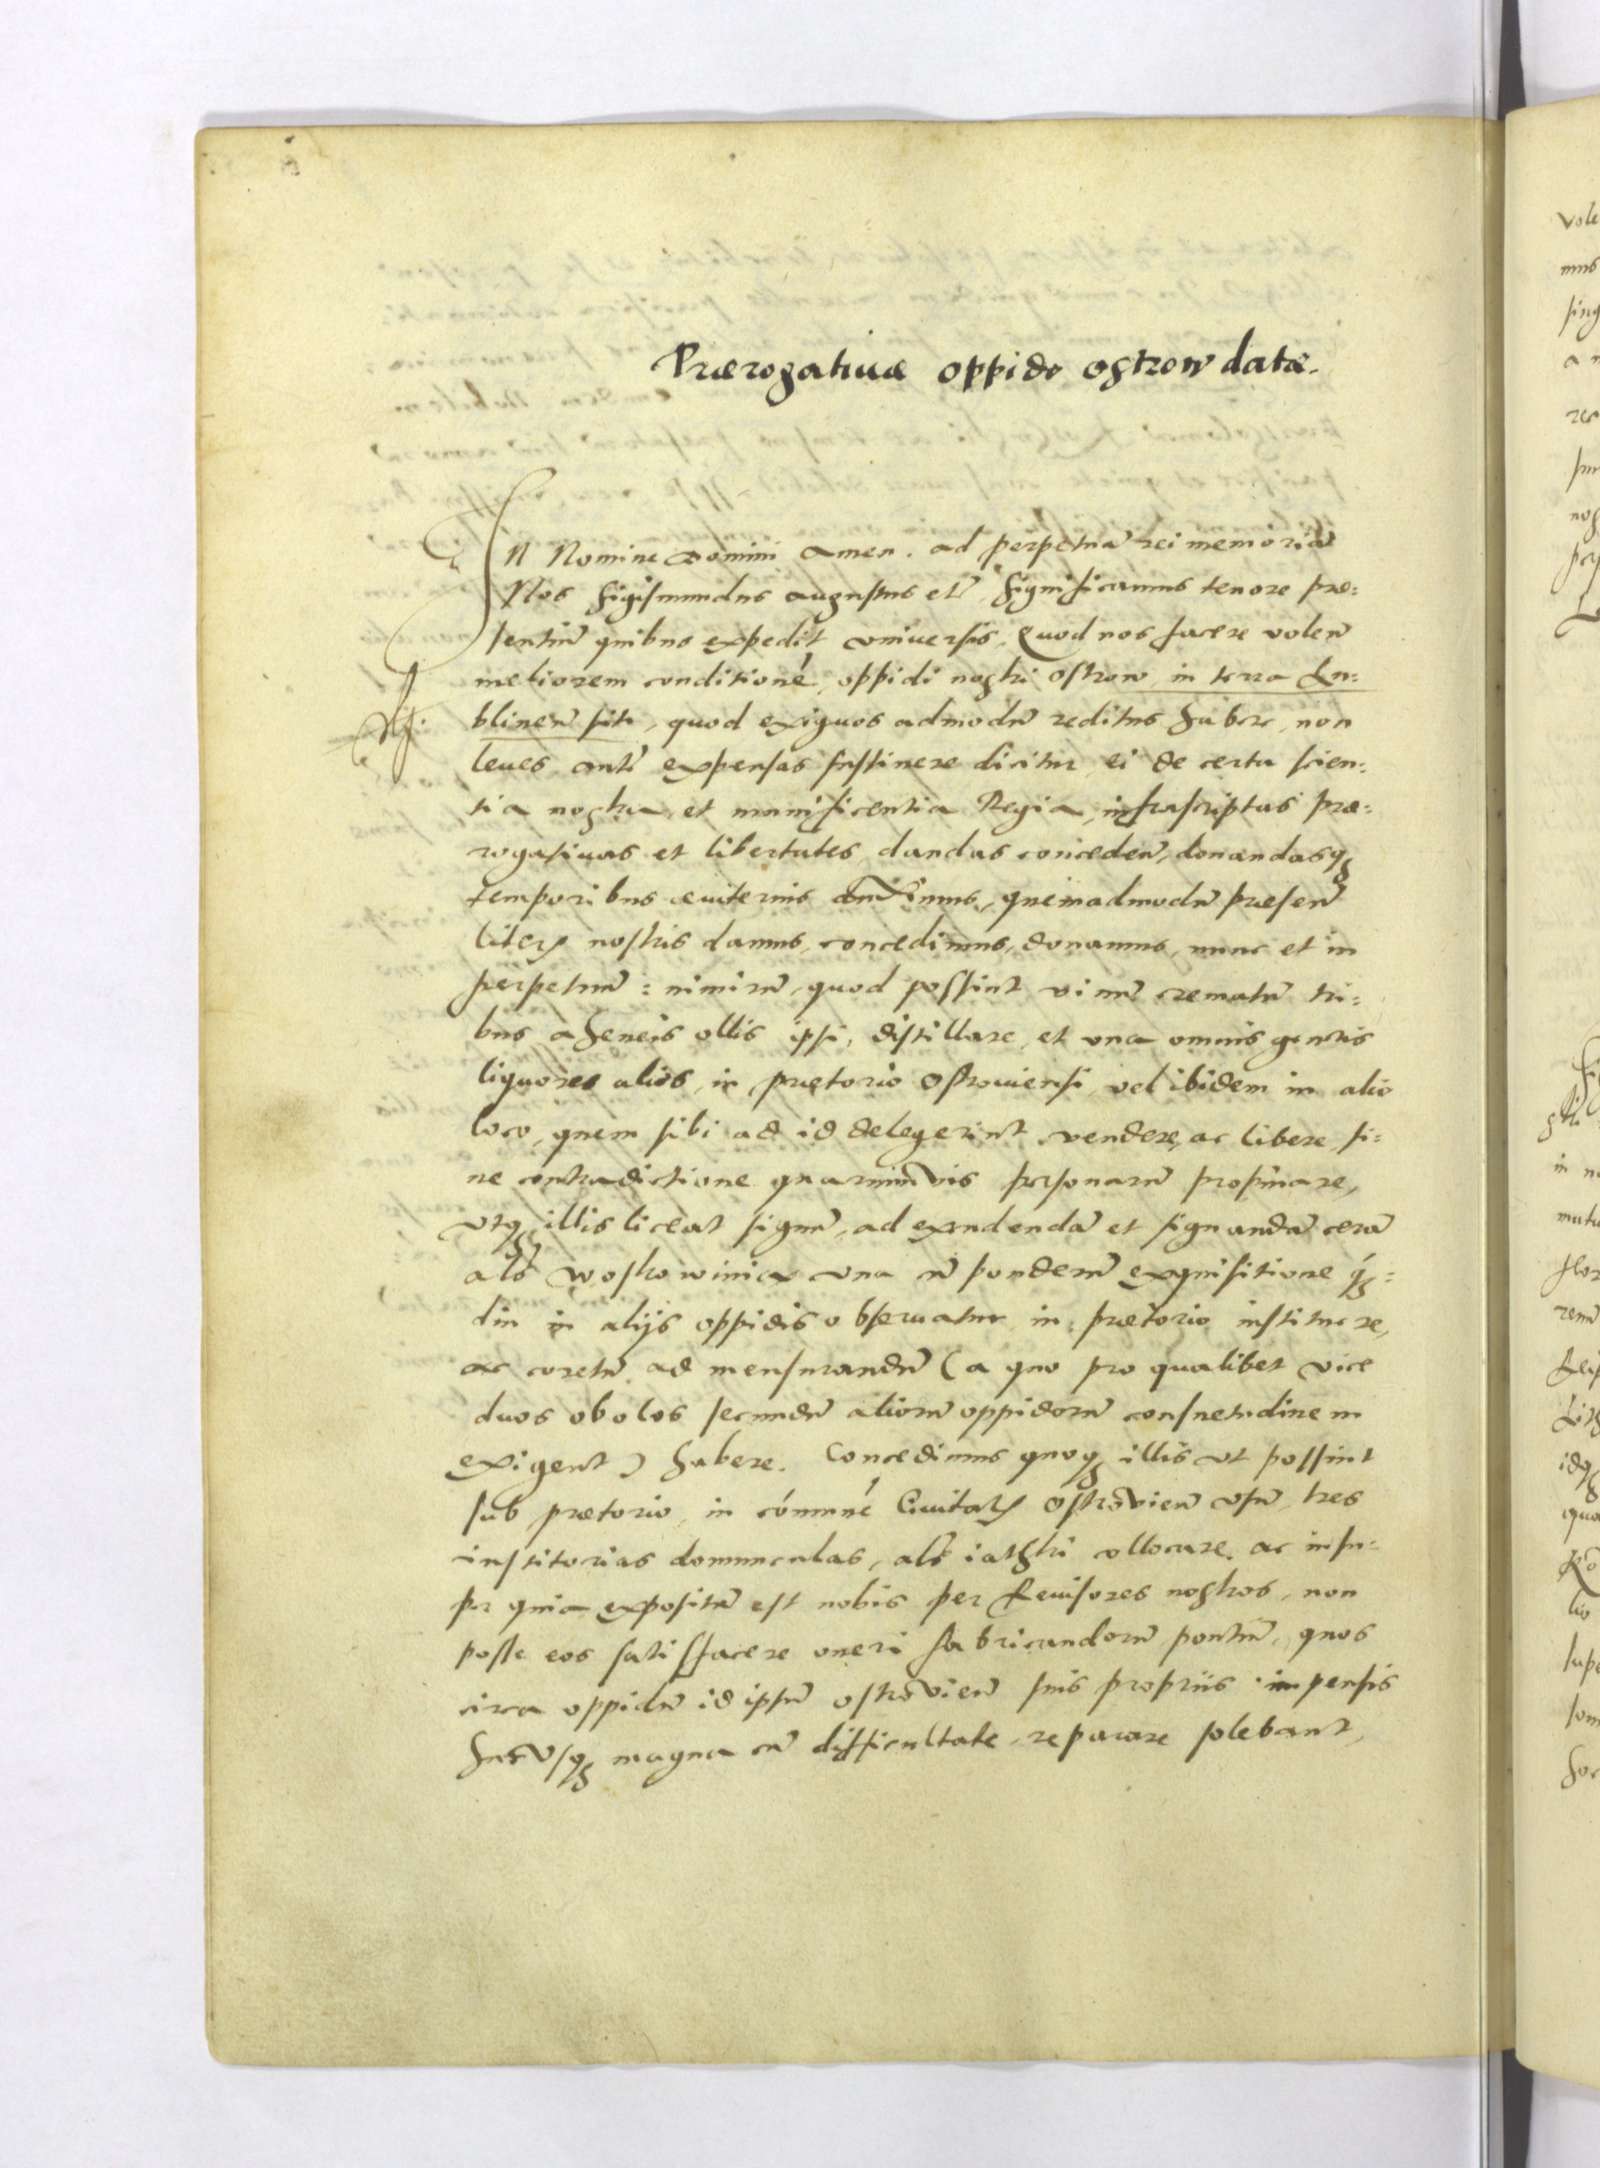 Prærogativæ oppido ostrow datæ.
IN Nomine Domini amen. ad perpetuā rei memoriā
Nos Sigismundus augustus etc̄ Significamus tenore præ:
sentiū quibus expedit vniversis. Quod nos facere volen̄
meliorem conditioné, oppidi nostri Ostrow in terra Lu:
blinen̄ siti, quod exiguos admodū reditus habere, non
leues autē expensas sustinere dicitur, ei de certa scien:
tia nostra et munificentia Regia, infrascriptas præ:
rogativas et libertates dandas conceden̄, donandasq3
temporibus æviternis duximus, quemadmodū præsen̄
literʒ nostris damus, concedimus, donamus, nunc et in
perpetuū: nimirū, quod possint vinū crematū tri:
bus aheneis ollis ipsi, distillare, et una omnis generis
liquores alios, in prætorio Ostrouiensi, vel ibidem in alio
loco, quem sibi ad id delegerint vendere, ac libere si:
ne contradictione quarumvis personarū propinare,
vtq3 illis liceat signū, ad exudendā et signandā cerā
als̄ wostrowinica vna cū ponderū exquisitione q́3:
diu in alijs oppidis obseruatur in prætorio instituere,
ac coretū ad mensurandū (a quo pro qualibet vice
duos obolos secundū aliorū oppidorū consuetudinem
exigent) habere. Concedimus quoq3 illis vt possint
sub prætorio, in cómuné Ciuitatʒ Ostrovien̄ vsū, tres
institorias domunculas, als̄ iathki collocare. ac insu:
per quia expositū est nobis per Reuisores nostros, non
posse eos satisfacere oneri fabricandorū pontiū, quos
circa oppidū id ipsū ostrovien̄ suis proprijs impensis
hucvsq3 magna cū difficultate reparare solebant,